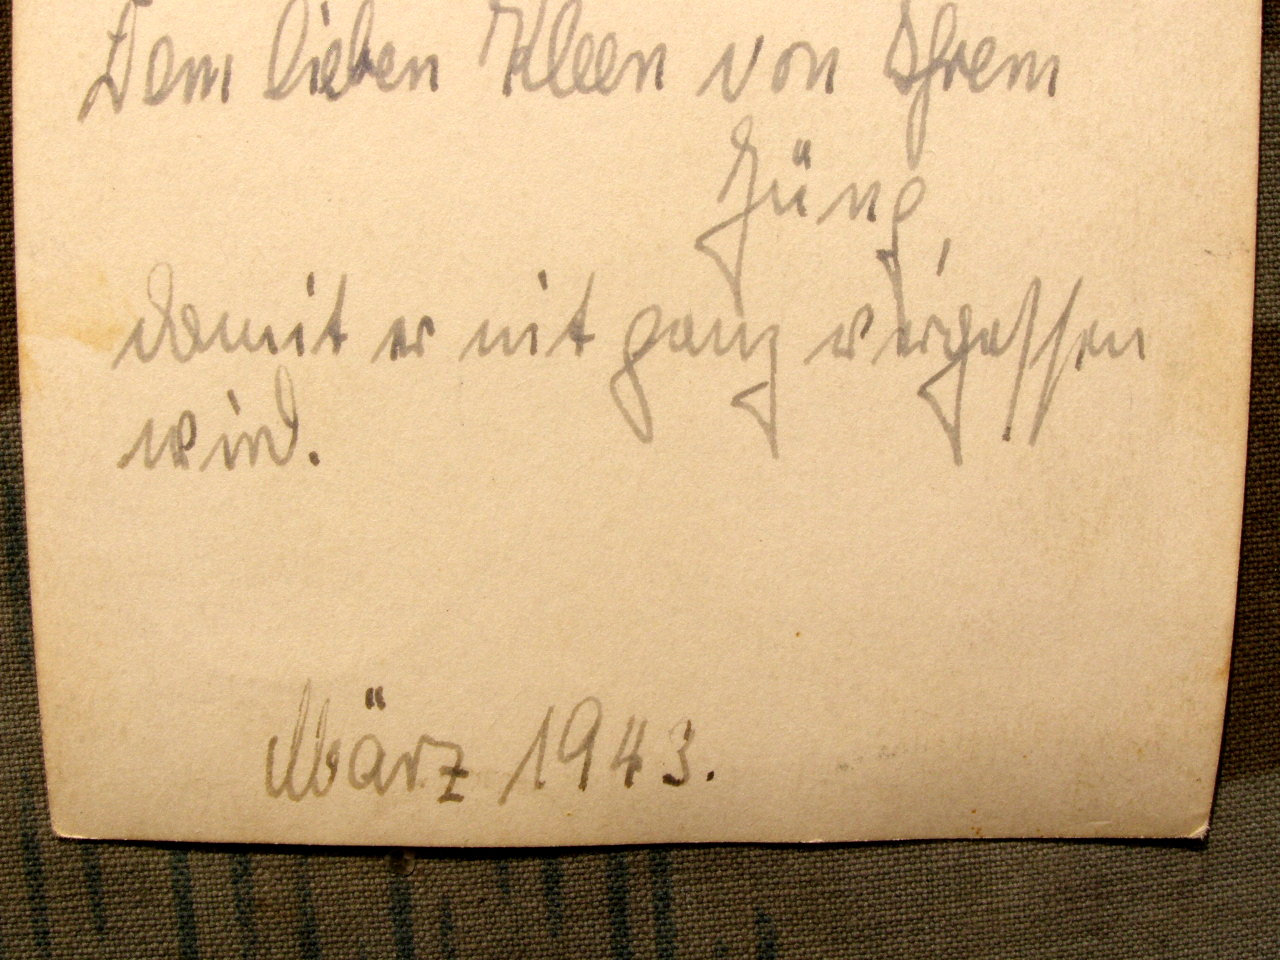 Dem lieben Kleen von Ihrem
Jüng,
damit er nit ganz vergessen
wird.
März 1943.